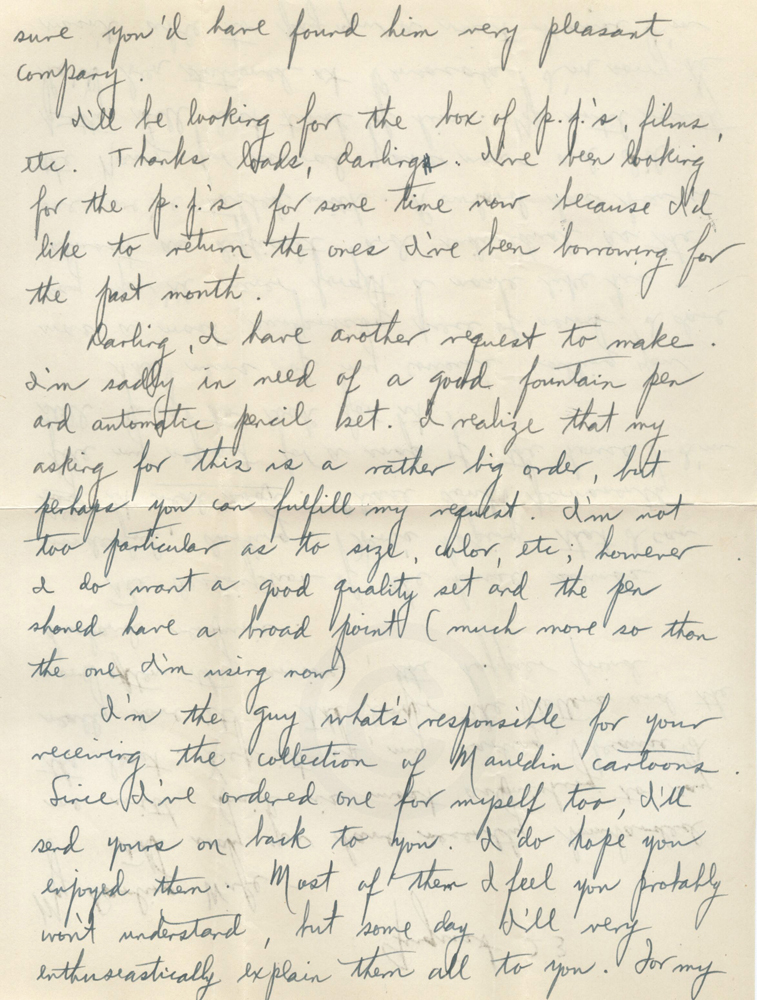 sure you'd have found him very pleasant
company.
I'll be looking for the box of p.j.'s, films,
etc. Thanks loads, darling. I've been looking
for the p.j.'s for some time now because I'd
like to return the ones I've been borrowing for
the past month.
Darling, I have another request to make.
I'm sadly in need of a good fountain pen
and automatic pencil set. I realize that my
asking for this is a rather big order, but
perhaps you can fulfill my request. I'm not
too particular as to size, color, etc; however
I do want a good quality set and the pen
shoned have a broad point (much more so than
the one I'm using now)
I'm the guy what's responsible for your
receiving the collection of Mauldin cartoons.
Since I've ordered one for myself too, I'll
send yours on back to you. I do hope you
enjoyed them. Most of them I feel you probably
won't understand, but some day I'll very
enthuseastically explain them all to you. For my